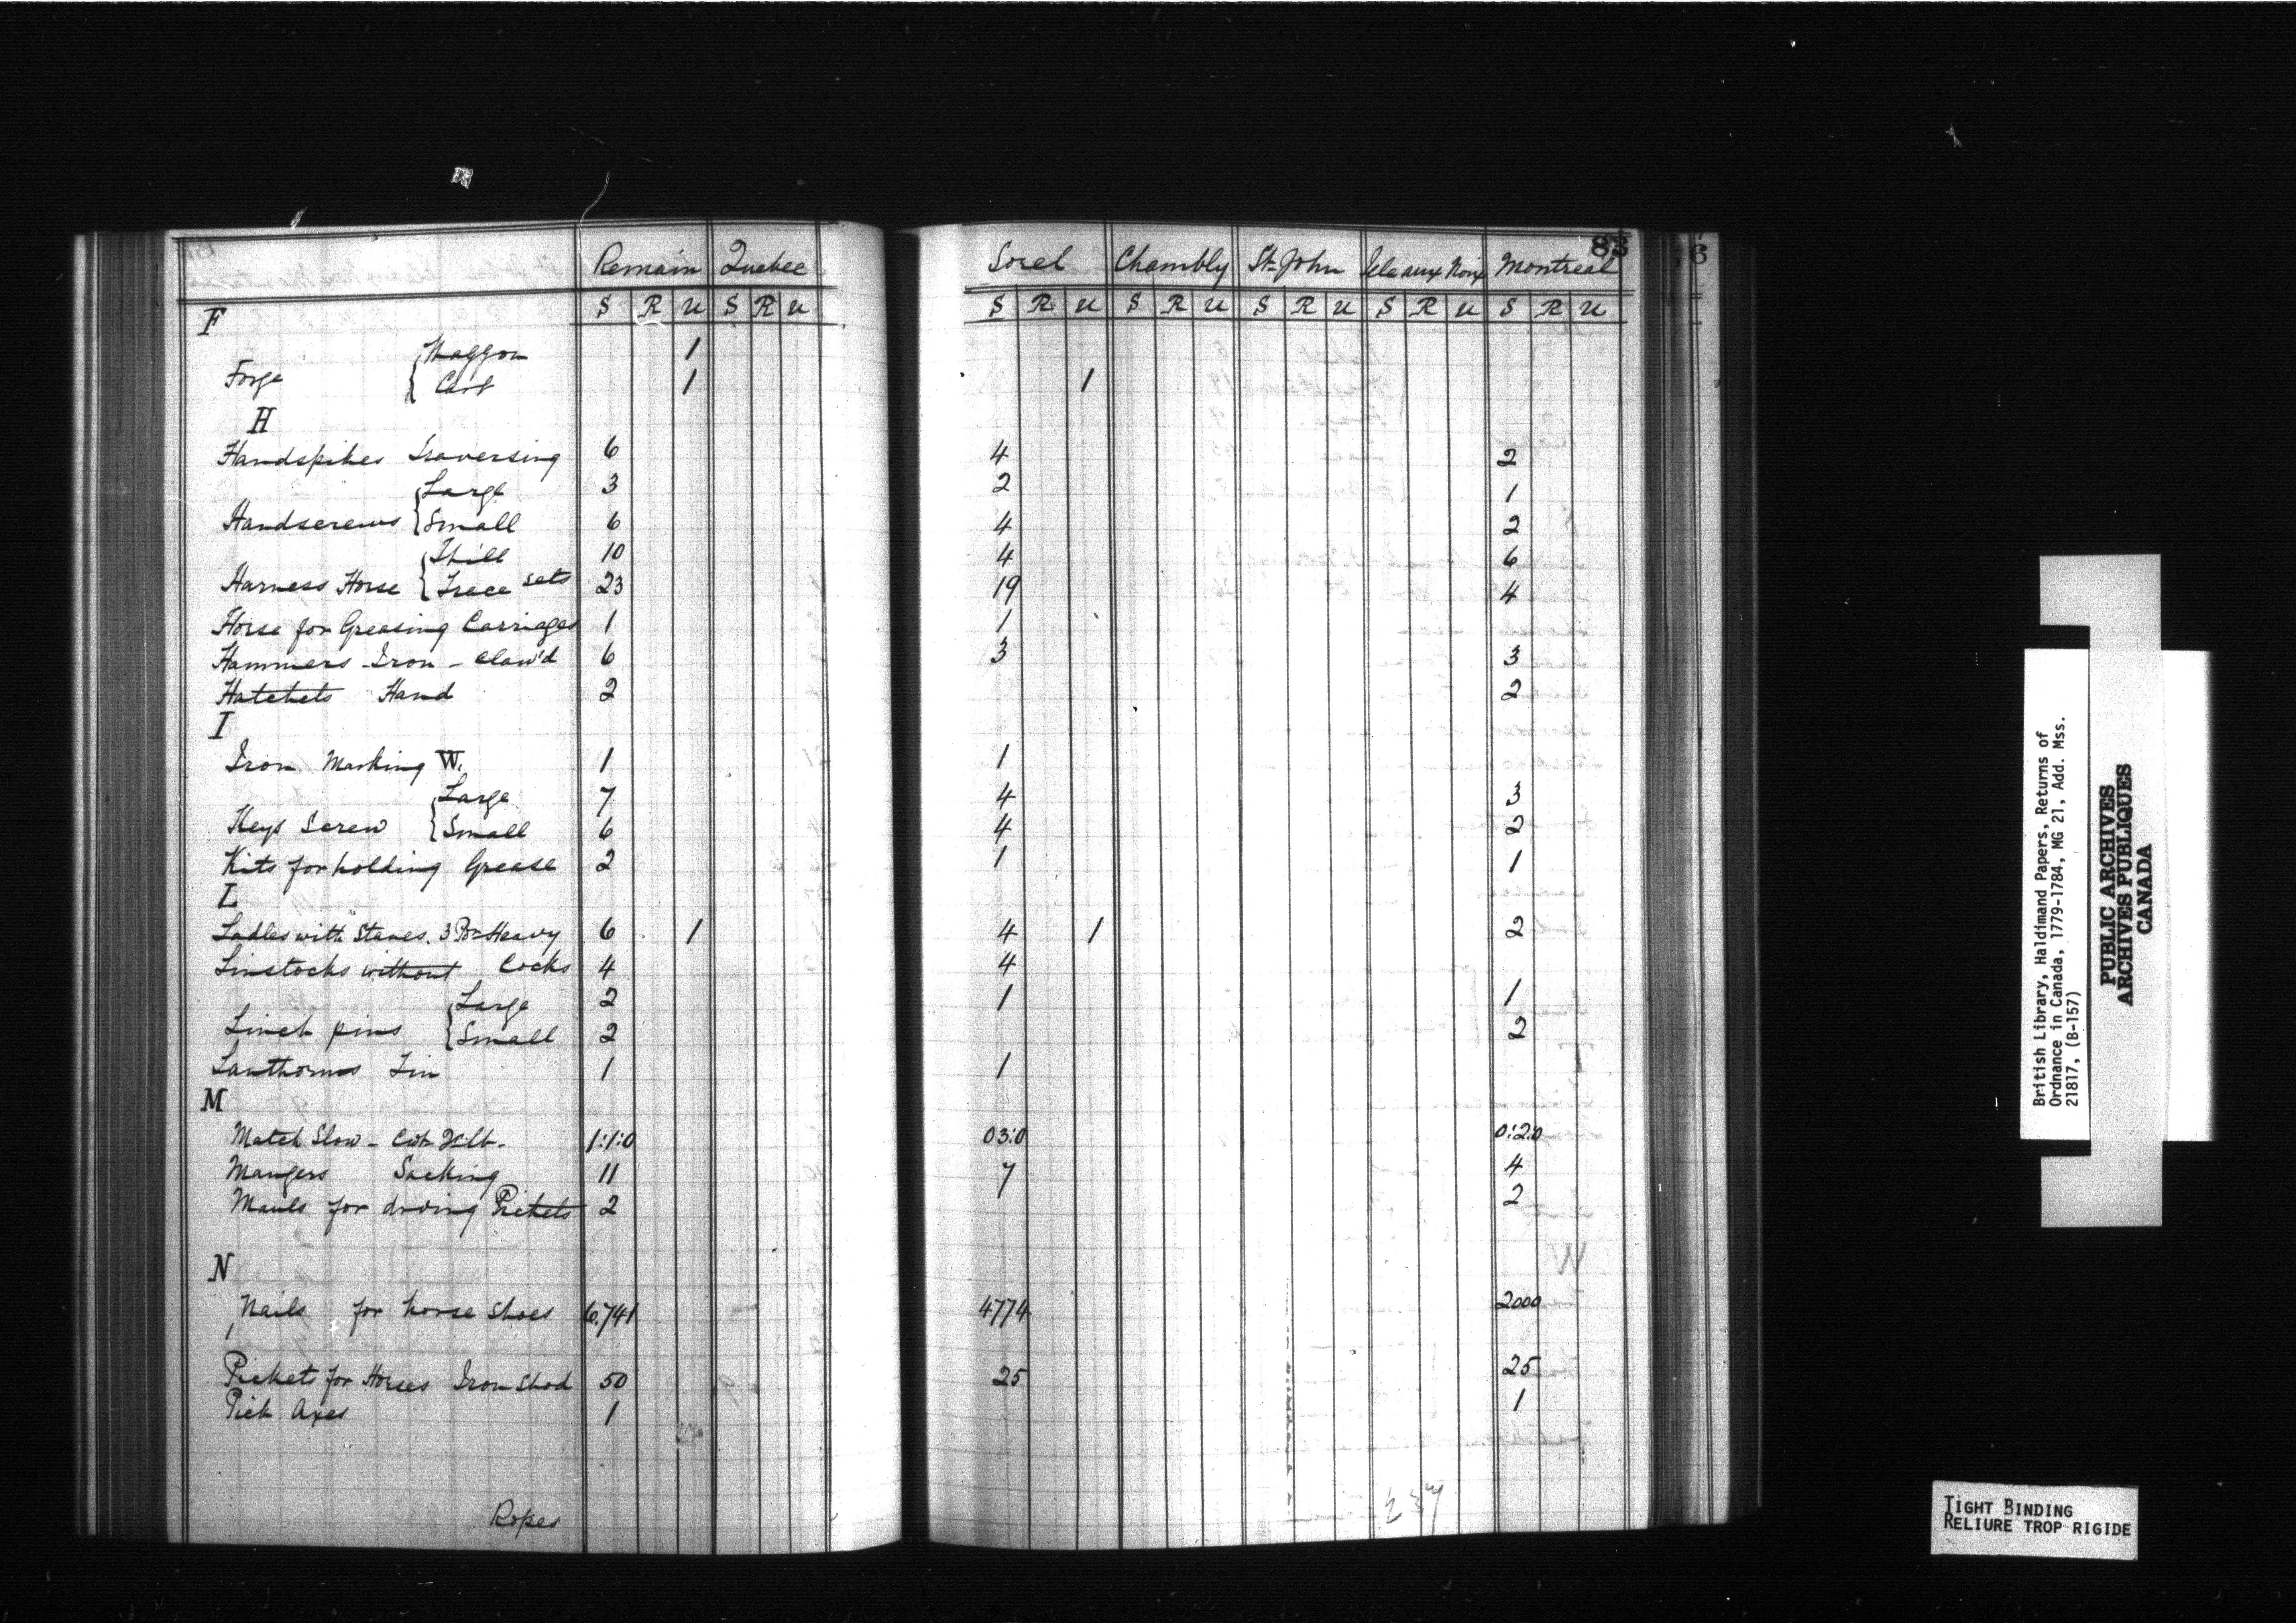 83
6
Remain Quebec Sorel Chambly St John Isle aux Noix Montreal
S R U S R U S R U S R U S R U S R U S R U
F
Forge { Waggon 1
Cart 1 1
H
Handspikes Traversing 6 4 2
Handscrews { Large 3 2 1
Small 6 4 2
Harness Horse { Thill 10 4 6
Trace sets 23 19 4
Horse for Greasing Carriages 1 1
Hammers Iron - Claw'd 6 3 3
Hatchets Hand 2 2
I
Iron Marking W. 1 1
Keys Screw { Large 7 4 3
Small 6 4 2
Kits for holding Grease 2 1 1
L
Ladles with Staves. 3 Pr Heavy 6 1 4 1 2
Linstocks without Cocks 4 4
Linch pins { Large 2 1 1
Small 2 2
Lanthorns Tin 1 1
M
Match Slow - Cwt lb. 1:1:0 03:0 0:2:0
Mangers Sacking 11 7 4
Mauls for driving Pickets 2 2
N
Nails for horse Shoes 6.741 4774 2000
Pickets for Horses Iron Shod 50 25 25
Pick Axes 1 1
Ropes
237
British Library, Haldimand Papers, Returns of
Ordnance in Canada, 1779-1784, MG 21, Add. Mss.
21817, (B-157)
PUBLIC ARCHIVES
ARCHIVES PUBLIQUES
CANADA
TIGHT BINDING
RELIURE TROP RIGIDE